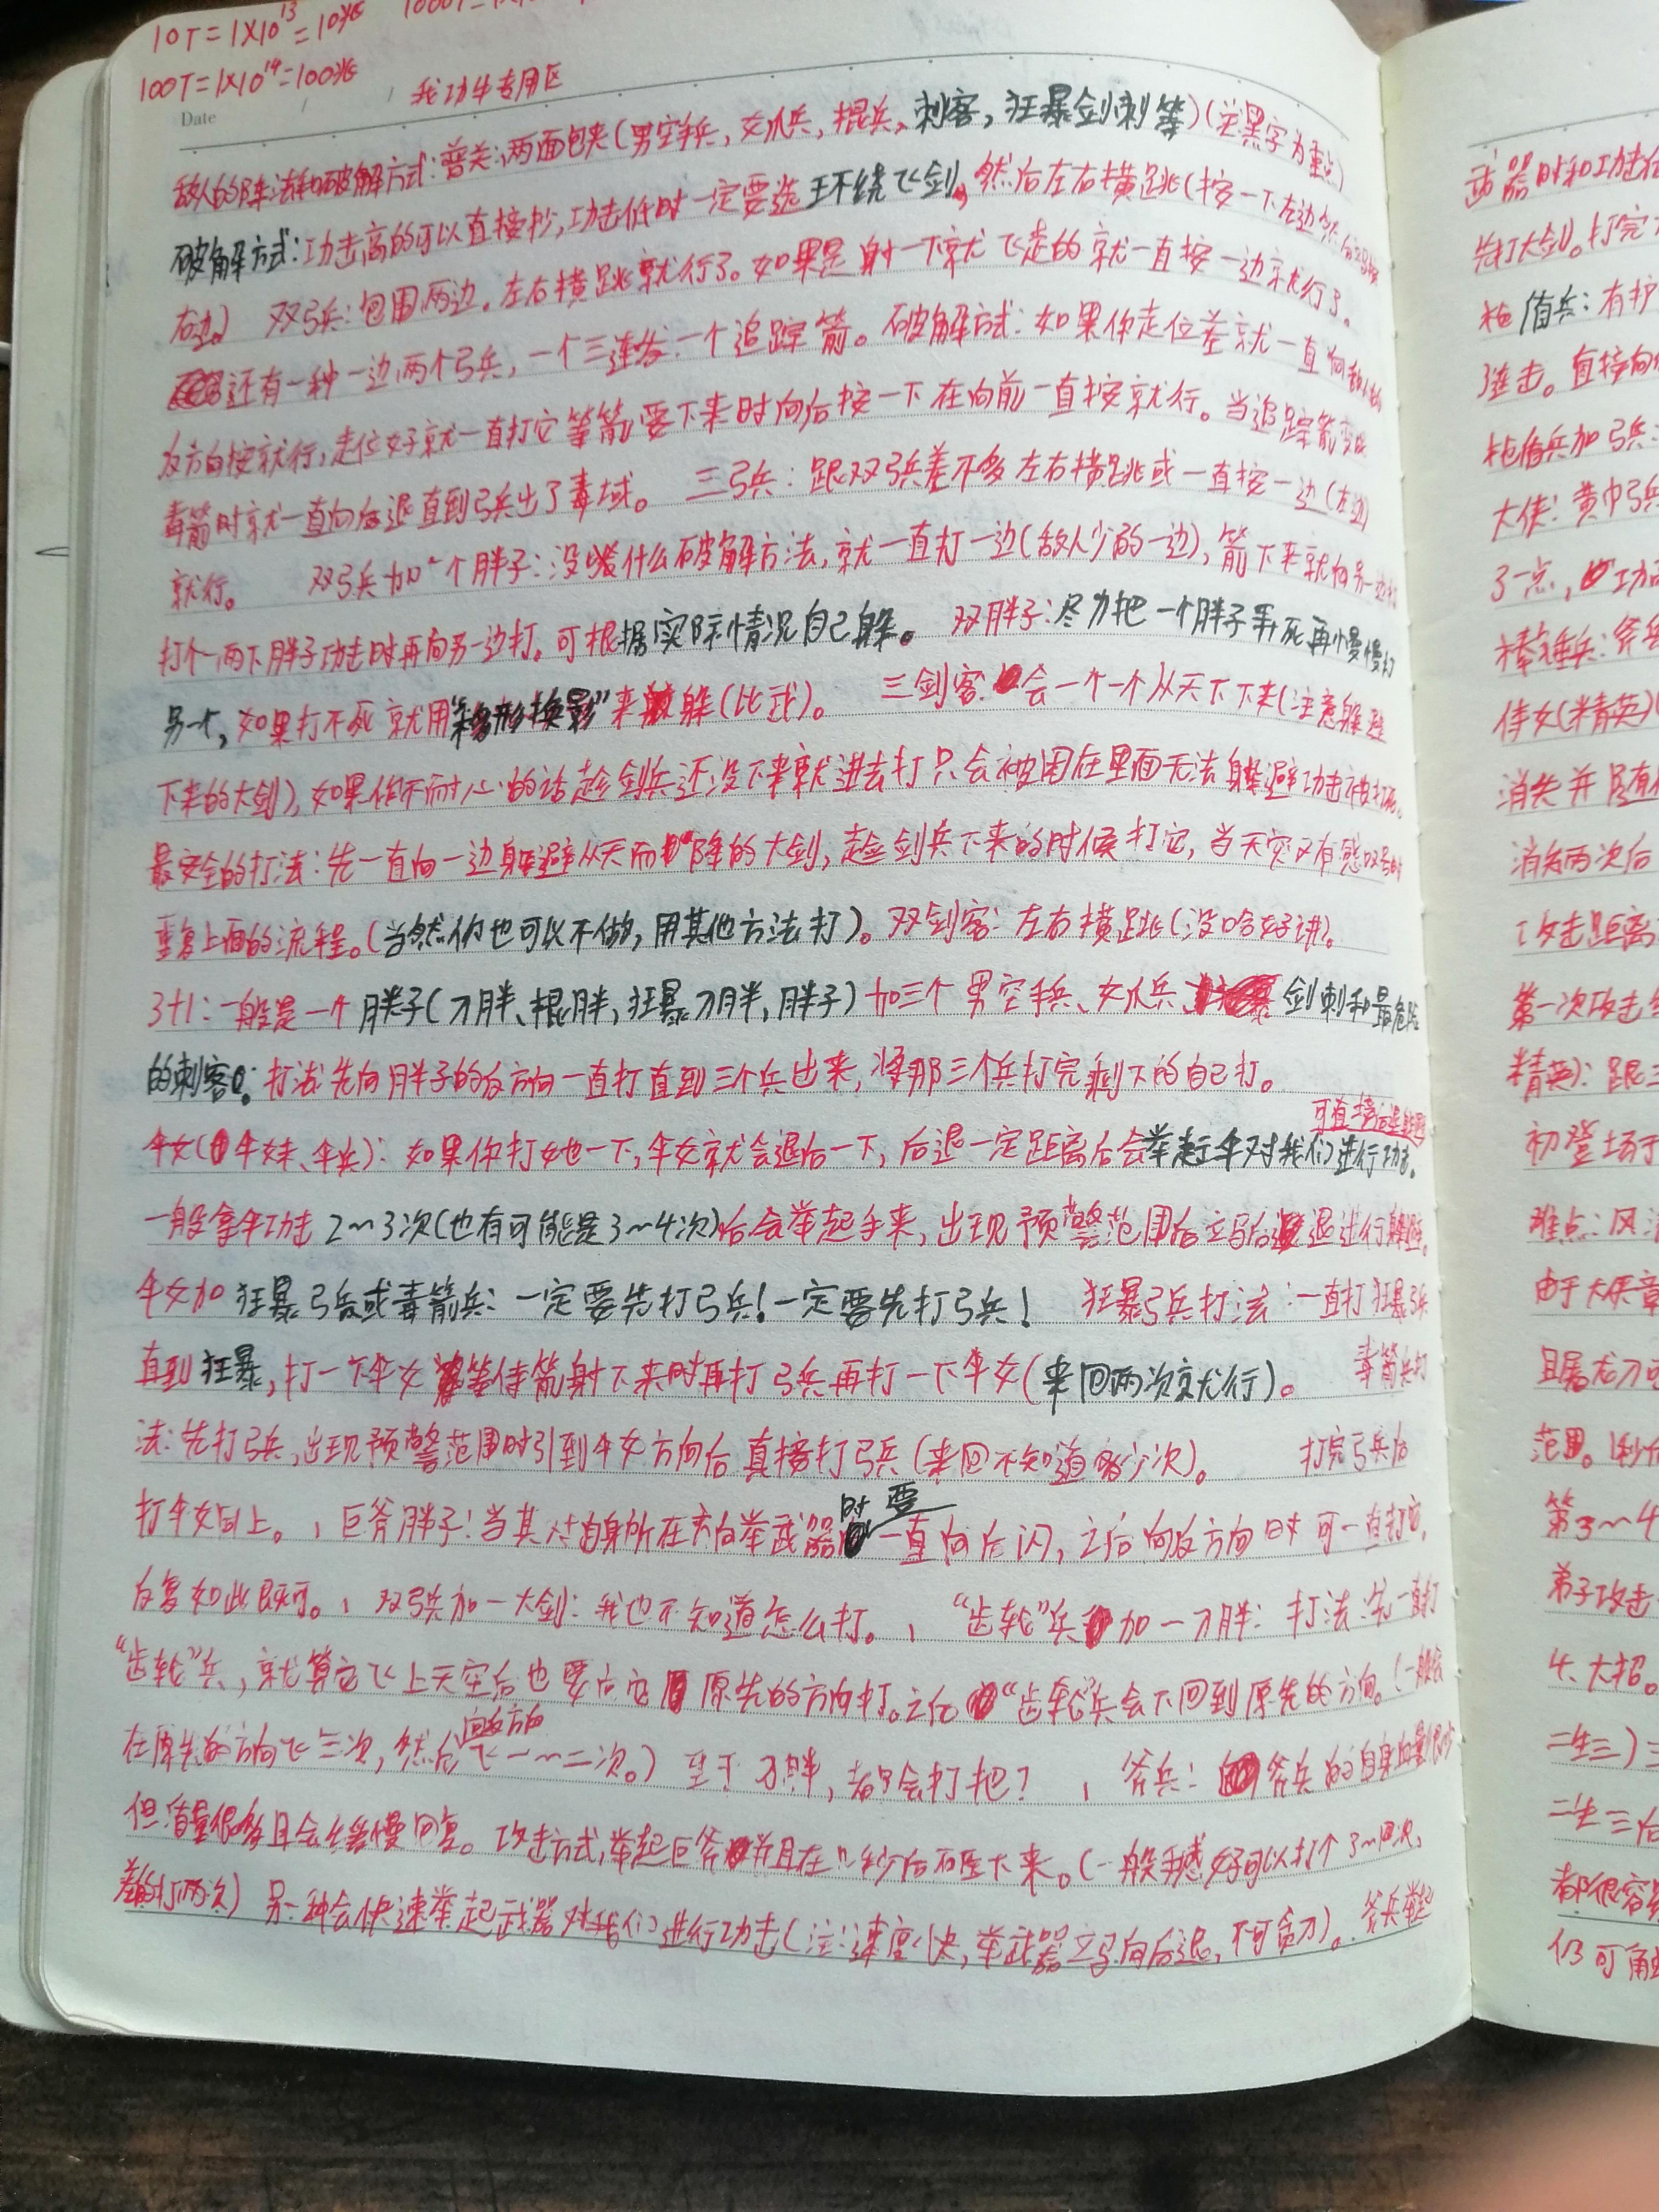 10T=1×10¹³=10兆
100T=1×10¹⁴=100兆
Date
我功牛专用区
敌人的阵法和破解方式:普关:两面包夹(男空手兵,女爪兵,棍兵、刺客,狂暴剑刺等)(注黑字为重点)
破解方式:功击高的可以直接抄,功击低时一定要选环绕飞剑,然后左右横跳(按一下左边然后
右边) 双弓兵:包围两边,左右横跳就行了。如果是射一下就飞走的就一直按一边就行了。
还有一种一边两个弓兵,一个三连发一个追踪箭。破解方式:如果你走位差就一直向
反方向按就行,走位好就一直打它等箭要下来时向后按一下在向前一直按就行。当追踪箭变成
毒箭时就一直向后退直到弓兵出了毒域。 三弓兵:跟双弓兵差不多左右横跳或一直按一边(左边)
就行。 双弓兵加一个胖子:没什么破解方法,就一直打一边(敌人少的一边),箭下来就向另一边
打个一两下胖子功击时再向另一边打。可根据实际情况自己躲。 双胖子:尽力把一个胖子弄死再慢慢打
另一个,如果打不死就用“移形换影”来躲(比武)。 三剑客:会一个一个从天下下来(注意躲避
下来的大剑),如果你不耐心的话趁剑兵还没下来就进去打只会被困在里面无法躲避功击被打死。
最安全的打法:先一直向一边躲避从天而降的大剑,趁剑兵下来的时候打它,当天空又有感叹号时
重复上面的流程。(当然你也可以不做,用其他方法打)。双剑客:左右横跳(没啥好讲)。
3+1:一般是一个胖子(刀胖、棍胖,狂暴刀胖,胖子)加三个男空手兵、女爪兵、剑刺和最危险
的刺客。打法:先向胖子的反方向一直打直到三个兵出来,将那三个兵打完剩下的自己打。
可直接后退
伞女(伞妹、伞兵):如果你打她一下,伞女就会退后一下,后退一定距离后会举起伞对我们进行功击。
一般拿伞功击2～3次(也有可能是3～4次)后会举起手来,出现预警范围后立马后退进行躲避。
伞女加狂暴弓兵或毒箭兵:一定要先打弓兵!一定要先打弓兵! 狂暴弓兵打法:一直打狂暴弓兵
直到狂暴,打一下伞女等待箭射下来时再打弓兵再打一下伞女(来回两次就行)。 毒箭兵打
法:先打弓兵,出现预警范围时引到伞女方向后直接打弓兵(来回不知道多少次)。 打完弓兵后
时要
打伞女同上。、巨斧胖子:当其对自身所在方向举武器一直向后闪,之后向反方向时可一直打它,
反复如此既可。、双弓兵加一大剑:我也不知道怎么打。、“齿轮”兵加一刀胖:打法:先一直打
“齿轮”兵,就算它飞上天空后也要向它原先的方向打。之后“齿轮”兵会下回到原先的方向。(一般会
向反方向
在原先的方向飞三次,然后飞一～二次。)至于刀胖,都会打把? 、斧兵:斧兵的自身血量很少
但盾量很多且会缓慢回复。攻击方式,举起巨斧并且在几秒后砸下来。(一般手感好可以打个3～4次,
差的打两次)另一种会快速举起武器对我们进行功击(注:速度快,举武器立马向后退,不可贪刀)。斧兵举起
武器时和功击
先打大剑。打完
盾兵:有护
了连击。直接向
盾兵加弓兵:
大侠:黄巾弓兵
了一点,功
棒锤兵:斧
侍女(半精英)
消失并
消失两次后
(攻击距离
第一次攻击
精英):跟
初登场于
难点:风
由于大侠章
且屠龙刀
范围。1秒
第3～4
弟子攻击
4、大招。
二生三)
二生三后
都很容易
仍可